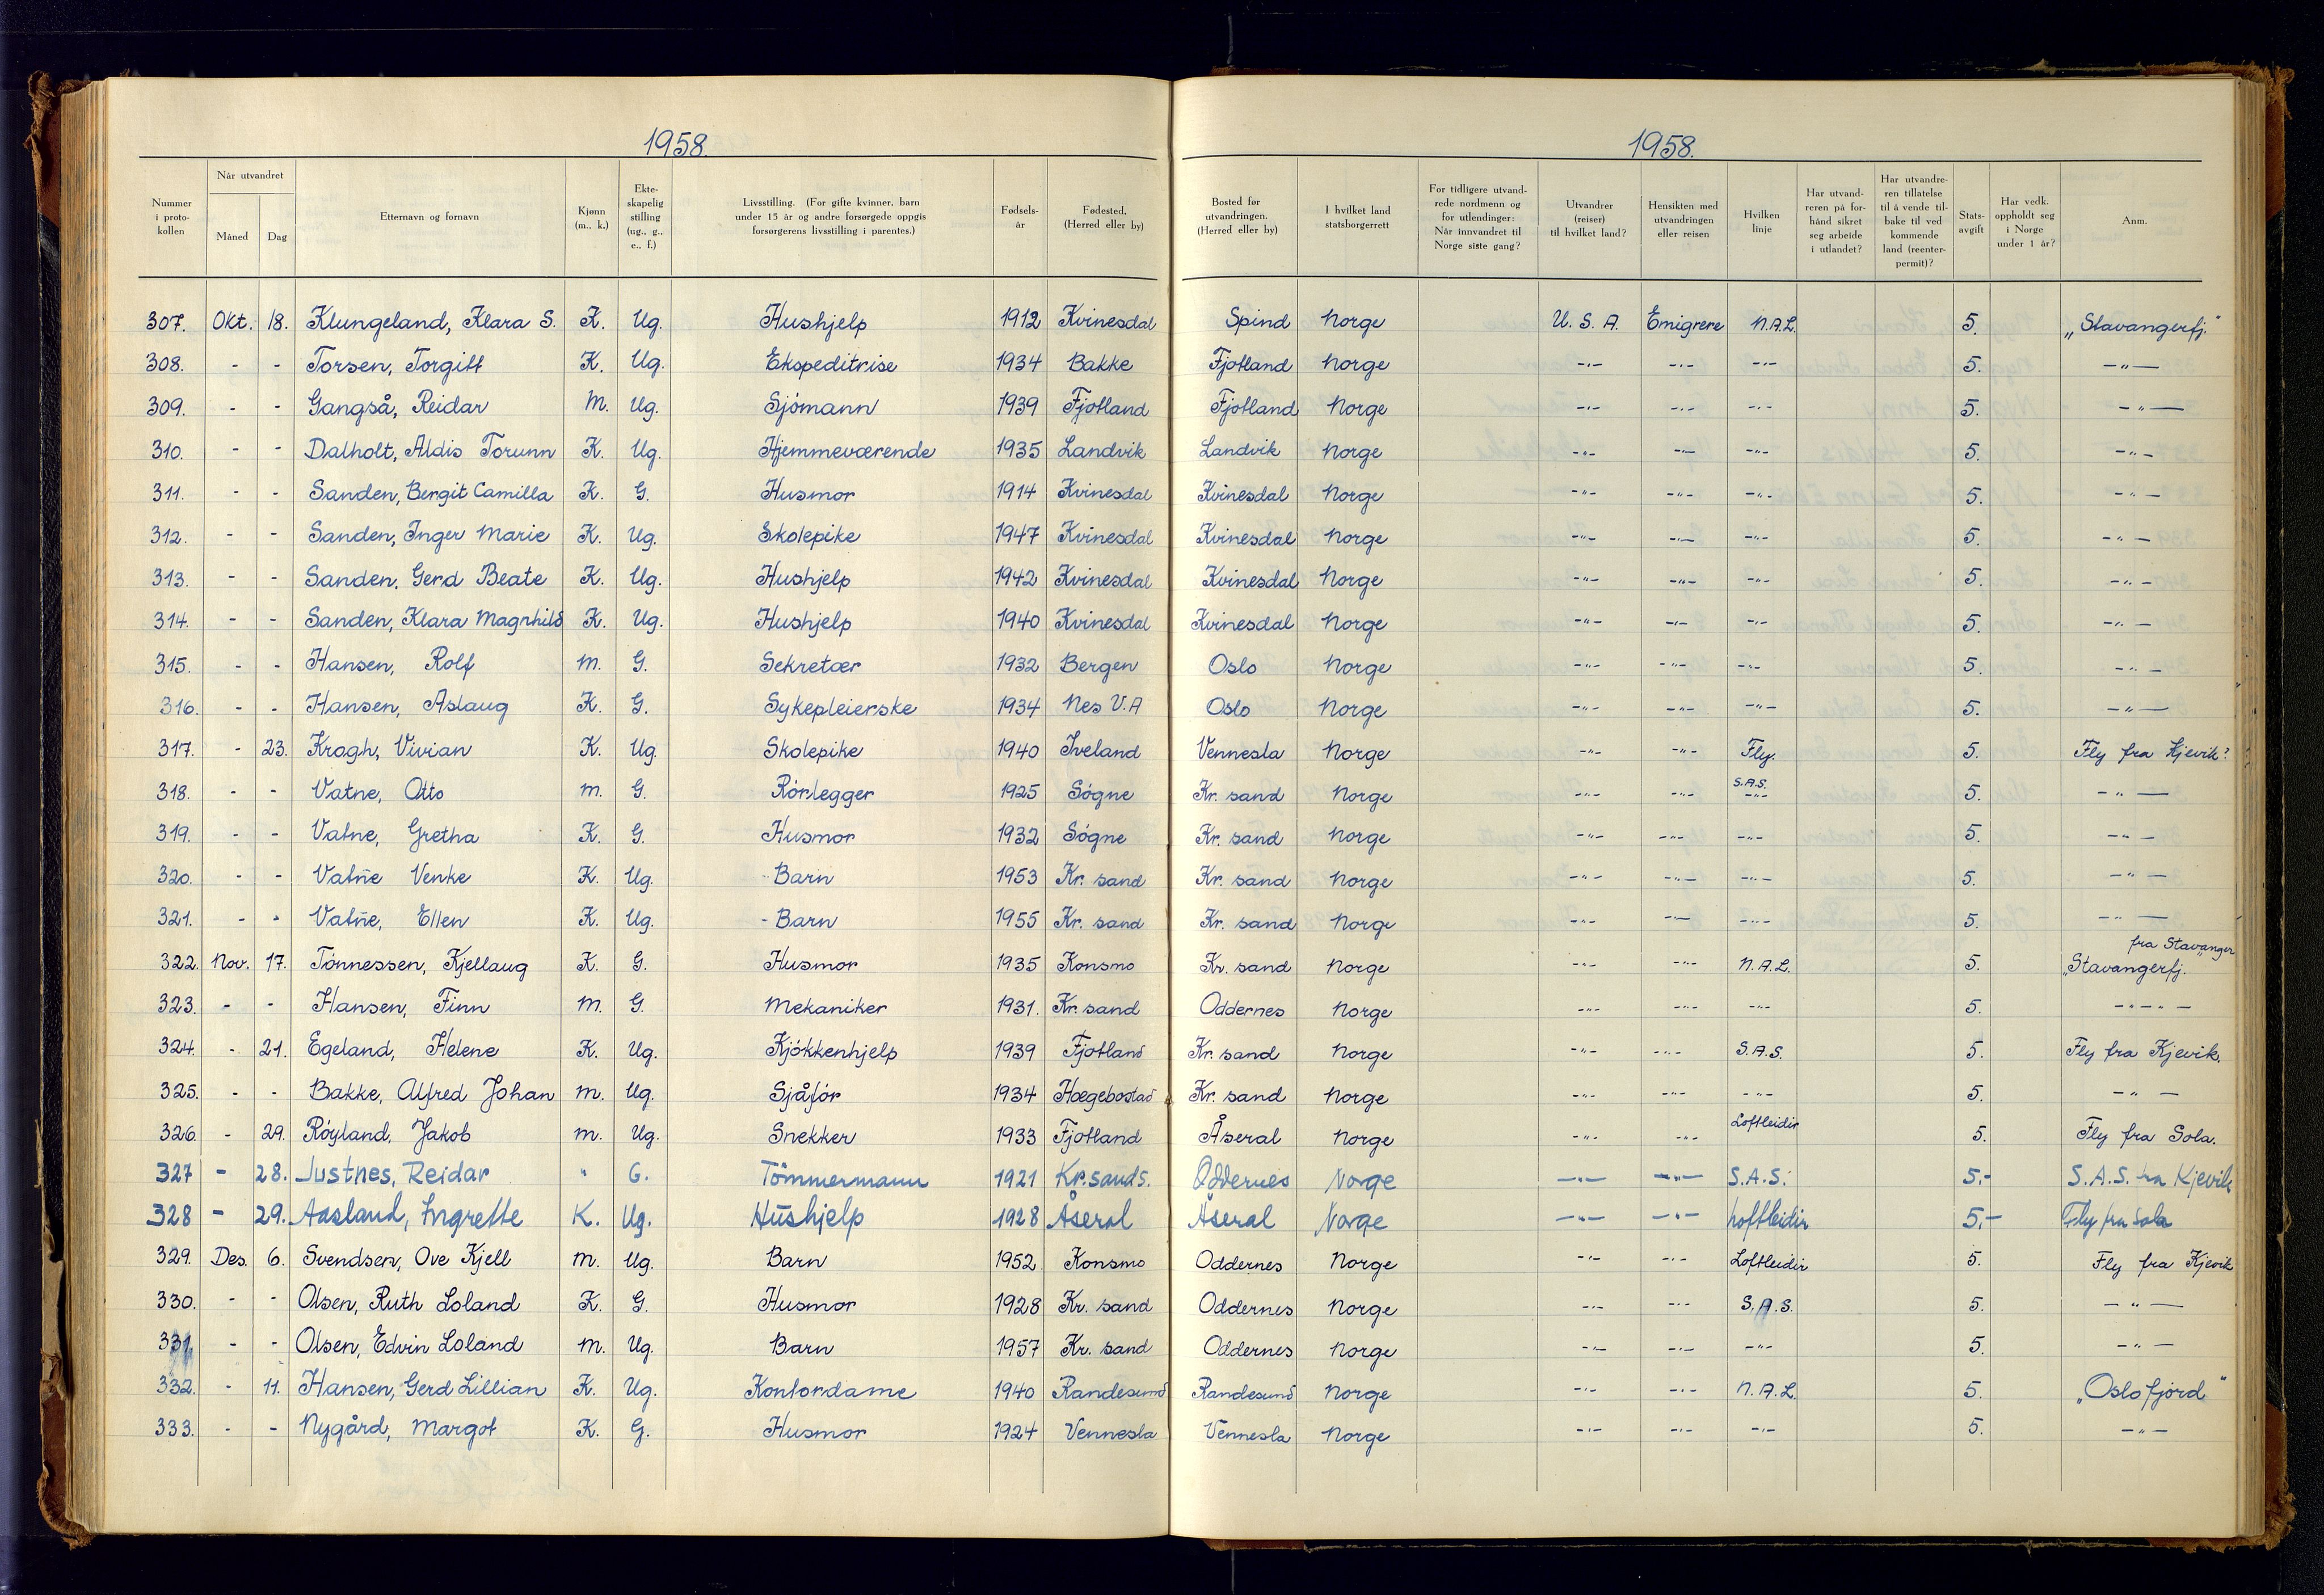 1958.
1958.
Nummer i proto- kollen | Når utvandret Måned Dag | Etternavn og fornavn | Kjønn (m., k.) | Ekte- skapelig stilling (ug., g., e., f.) | Livsstilling. (For gifte kvinner, barn under 15 år og andre forsørgede oppgis forsørgerens livsstilling i parentes.) | Fødsels- år | Fødested. (Herred eller by) | Bosted før utvandringen. (Herred eller by) | I hvilket land statsborgerrett | For tidligere utvand- rede nordmenn og for utlendinger: Når innvandret til Norge siste gang? | Utvandrer (reiser) til hvilket land? | Hensikten med utvandringen eller reisen | Hvilken linje | Har utvand- reren på for- hånd sikret seg arbeide i utlandet? | Har utvandre- ren tillatelse til å vende til- bake til ved kommende land (reenter- permit)? | Stats- avgift | Har vedk. oppholdt seg i Norge under 1 år? | Anm.
307. Okt. 18. Klungeland, Klara S. K. Ug. Hushjelp 1912 Kvinesdal Spind Norge U.S.A. Emigrere N.A.L. 5. „Stavangerfj."
308. - - Torsen, Torgitt K. Ug. Ekspeditrise 1934 Bakke Fjotland Norge -"- -"- -"- 5. -"-
309. - - Gangså, Reidar M. Ug. Sjómann 1939 Fjotland Fjotland Norge -"- -"- -"- 5. -"-
310. - - Dalholt, Aldis Torunn K. Ug. Hjemmeværende 1935 Landvik Landvik Norge -"- -"- -"- 5. -"-
311. - - Sanden, Bergit Camilla K. G. Husmor 1914 Kvinesdal Kvinesdal Norge -"- -"- -"- 5. -"-
312. - - Sanden, Inger Marie K. Ug. Skolepike 1947 Kvinesdal Kvinesdal Norge -"- -"- -"- 5. -"-
313. - - Sanden, Gerd Beate K. Ug. Hushjelp 1942 Kvinesdal Kvinesdal Norge -"- -"- -"- 5. -"-
314. - - Sanden, Klara Magnhild K. Ug. Hushjelp 1940 Kvinesdal Kvinesdal Norge -"- -"- -"- 5. -"-
315. - - Hansen, Rolf M. G. Sekretær 1932 Bergen Oslo Norge -"- -"- -"- 5. -"-
316. - - Hansen, Aslaug K. G. Sykepleierske 1934 Nes V.A Oslo Norge -"- -"- -"- 5. -"-
317. - 23. Krogh, Vivian K. Ug. Skolepike 1940 Iveland Vennesla Norge -"- -"- Fly. 5. Fly fra Kjevik?
318. - - Vatne, Otto M. G. Rórlegger 1925 Sógne Kr. sand Norge -"- -"- S.A.S. -"- 5. -"-
319. - - Vatne, Gretha K. G. Husmor 1932 Sógne Kr. sand Norge -"- -"- -"- 5. -"-
320. - - Vatne Venke K. Ug. - Barn 1953 Kr. sand Kr. sand Norge -"- -"- -"- 5. -"-
321. - - Vatne, Ellen K. Ug. - Barn 1955 Kr. sand Kr. sand Norge -"- -"- -"- 5. -"-
322. Nov. 17. Tónnessen, Kjellaug K. G. Husmor 1935 Konsmo Kr. sand Norge -"- -"- N.A.L. 5. „Stavangerfj." fra Stavanger
323. - - Hansen, Finn M. G. Mekaniker 1931. Kr. sand Oddernes Norge -"- -"- -"- 5. -"-"-
324. - 21. Egeland, Helene K. Ug. Kjókkenhjelp 1939 Fjotland Kr. sand Norge -"- -"- S.A.S. 5. Fly fra Kjevik.
325. - - Bakke, Alfred Johan M. Ug. Sjåfór 1934 Hægebostad Kr. sand Norge -"- -"- -"- 5. -"-
326. - 29. Róyland, Jakob M. Ug. Snekker 1933 Fjotland Åseral Norge -"- -"- Loftleidir 5. Fly fra Sola.
327 - 28. Justnes, Reidar " G. Tömmermann 1921 Kr.sands. Oddernes Norge -"- -"- S.A.S. 5.- S.A.S. fra Kjevik
328 - 29. Aasland, Ingrette K. Ug. Hushjelp 1928 Åseral Åseral Norge -"- -"- Loftleidir 5.- Fly fra Sola
329. Des. 6. Svendsen, Ove Kjell M. Ug. Barn 1952 Konsmo Oddernes Norge -"- -"- Loftleidir 5. Fly fra Kjevik
330. - - Olsen, Ruth Loland K. G. Husmor 1928 Kr. sand Oddernes Norge -"- -"- S.A.S. 5. -"-
331. - - Olsen, Edvin Loland M. Ug. Barn 1957 Kr. sand Oddernes Norge -"- -"- -"- 5. -"-
332. - 11. Hansen, Gerd Lillian K. Ug. Kontordame 1940 Randesund Randesund Norge -"- -"- N.A.L. 5. „Oslofjord"
333. - - Nygård, Margot K. G. Husmor 1924 Vennesla Vennesla Norge -"- -"- -"- 5. -"-